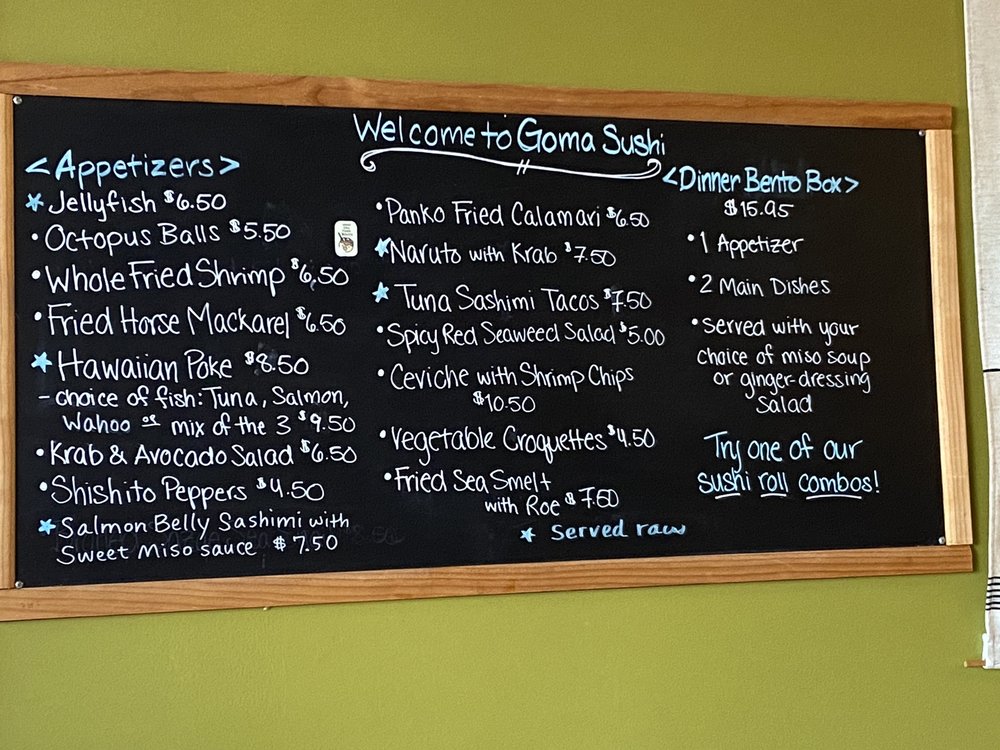 Welcome to Goma Sushi
<Appetizers>
★ Jellyfish $6.50
• Octopus Balls $5.50
• Whole Fried Shrimp $6.50
• Fried Horse Mackarel $6.50
★ Hawaiian Poke $8.50
- choice of fish: Tuna, Salmon,
Wahoo or mix of the 3 $9.50
• Krab & Avocado Salad $6.50
• Shishito Peppers $4.50
★ Salmon Belly Sashimi with
Sweet Miso sauce $7.50
• Panko Fried Calamari $6.50
★ Naruto with Krab $7.50
★ Tuna Sashimi Tacos $7.50
• Spicy Red Seaweed Salad $5.00
• Ceviche with Shrimp Chips
$10.50
• Vegetable Croquettes $4.50
• Fried Sea Smelt
with Roe $7.50
★ Served raw
<Dinner Bento Box>
$15.95
• 1 Appetizer
• 2 Main Dishes
• Served with your
choice of miso soup
or ginger-dressing
Salad
Try one of our
sushi roll combos!